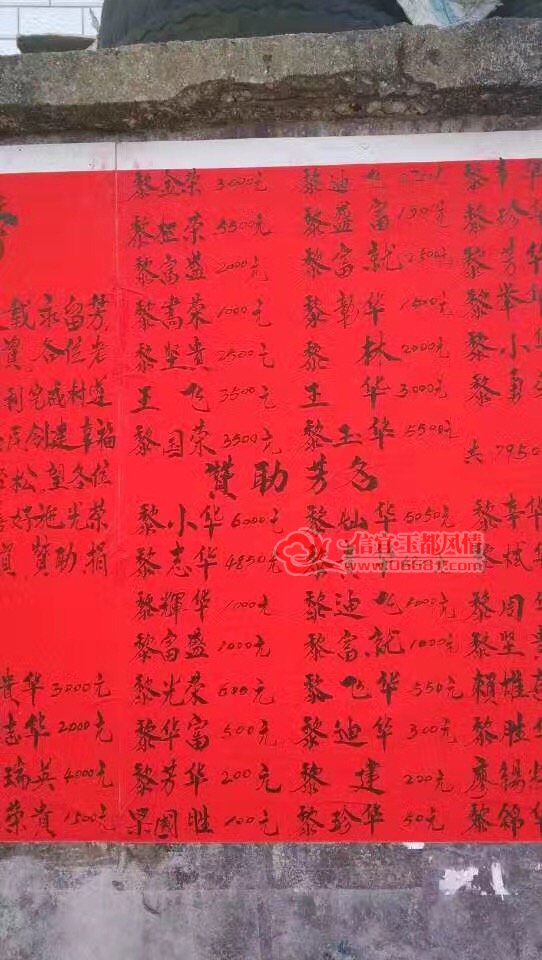 載永留芳
各位老
利完成村道
創建幸福
松望各位
好施光榮
贊助捐
貴华3000元
志华2000元
瑞英4000元
荣貴1500元
黎金荣3000元
黎恒荣5500元
黎富益2000元
黎嵩荣1000元
黎坚貴2500元
王飞3500元
黎国荣3500元
黎迪飞
黎益富
黎富就2500元
黎彰华1500元
黎林2000元
王华3000元
黎玉华5500元
黎珍
黎芳华
黎举华
黎小
黎勇
共7950
贊助芳名
黎小华6000元
黎志华4850元
黎輝华1000元
黎富盛1000元
黎光荣600元
黎华富500元
黎芳华200元
国胜100元
黎灿华5050元
黎
黎迪飞1000元
黎富就1000元
黎飞华550元
黎迪华300元
黎建200元
黎珍华50元
黎幸华
黎斌华
黎周华
黎坚貴
賴雄
黎胜华
廖錫
黎錦华
信宜玉都风情
www.06681.com